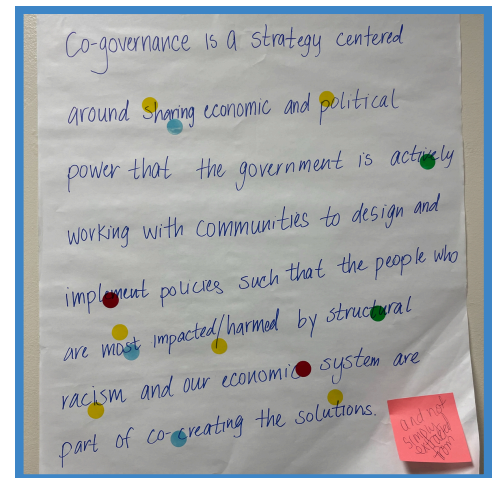 Co-governance is a strategy centered
around sharing economic and political
power that the government is actively
working with communities to design and
implement policies such that the people who
are most impacted/harmed by structural
racism and our economic system are
part of co-creating the solutions.
and not
simply